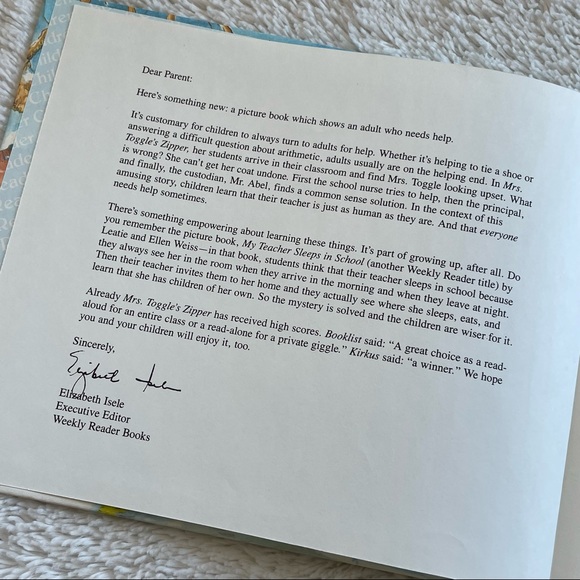 Dear Parent:
Here's something new: a picture book which shows an adult who needs help.
It's customary for children to always turn to adults for help. Whether it's helping to tie a shoe or
answering a difficult question about arithmetic, adults usually are on the helping end. In Mrs.
Toggle's Zipper, her students arrive in their classroom and find Mrs. Toggle looking upset. What
is wrong? She can't get her coat undone. First the school nurse tries to help, then the principal,
and finally, the custodian, Mr. Abel, finds a common sense solution. In the context of this
amusing story, children learn that their teacher is just as human as they are. And that everyone
needs help sometimes.
There's something empowering about learning these things. It's part of growing up, after all. Do
you remember the picture book, My Teacher Sleeps in School (another Weekly Reader title) by
Leatie and Ellen Weiss—in that book, students think that their teacher sleeps in school because
they always see her in the room when they arrive in the morning and when they leave at night.
Then their teacher invites them to her home and they actually see where she sleeps, eats, and
learn that she has children of her own. So the mystery is solved and the children are wiser for it.
Already Mrs. Toggle's Zipper has received high scores. Booklist said: "A great choice as a read-
aloud for an entire class or a read-alone for a private giggle." Kirkus said: "a winner." We hope
you and your children will enjoy it, too.
Sincerely,
Elizabeth Isele
Elizabeth Isele
Executive Editor
Weekly Reader Books